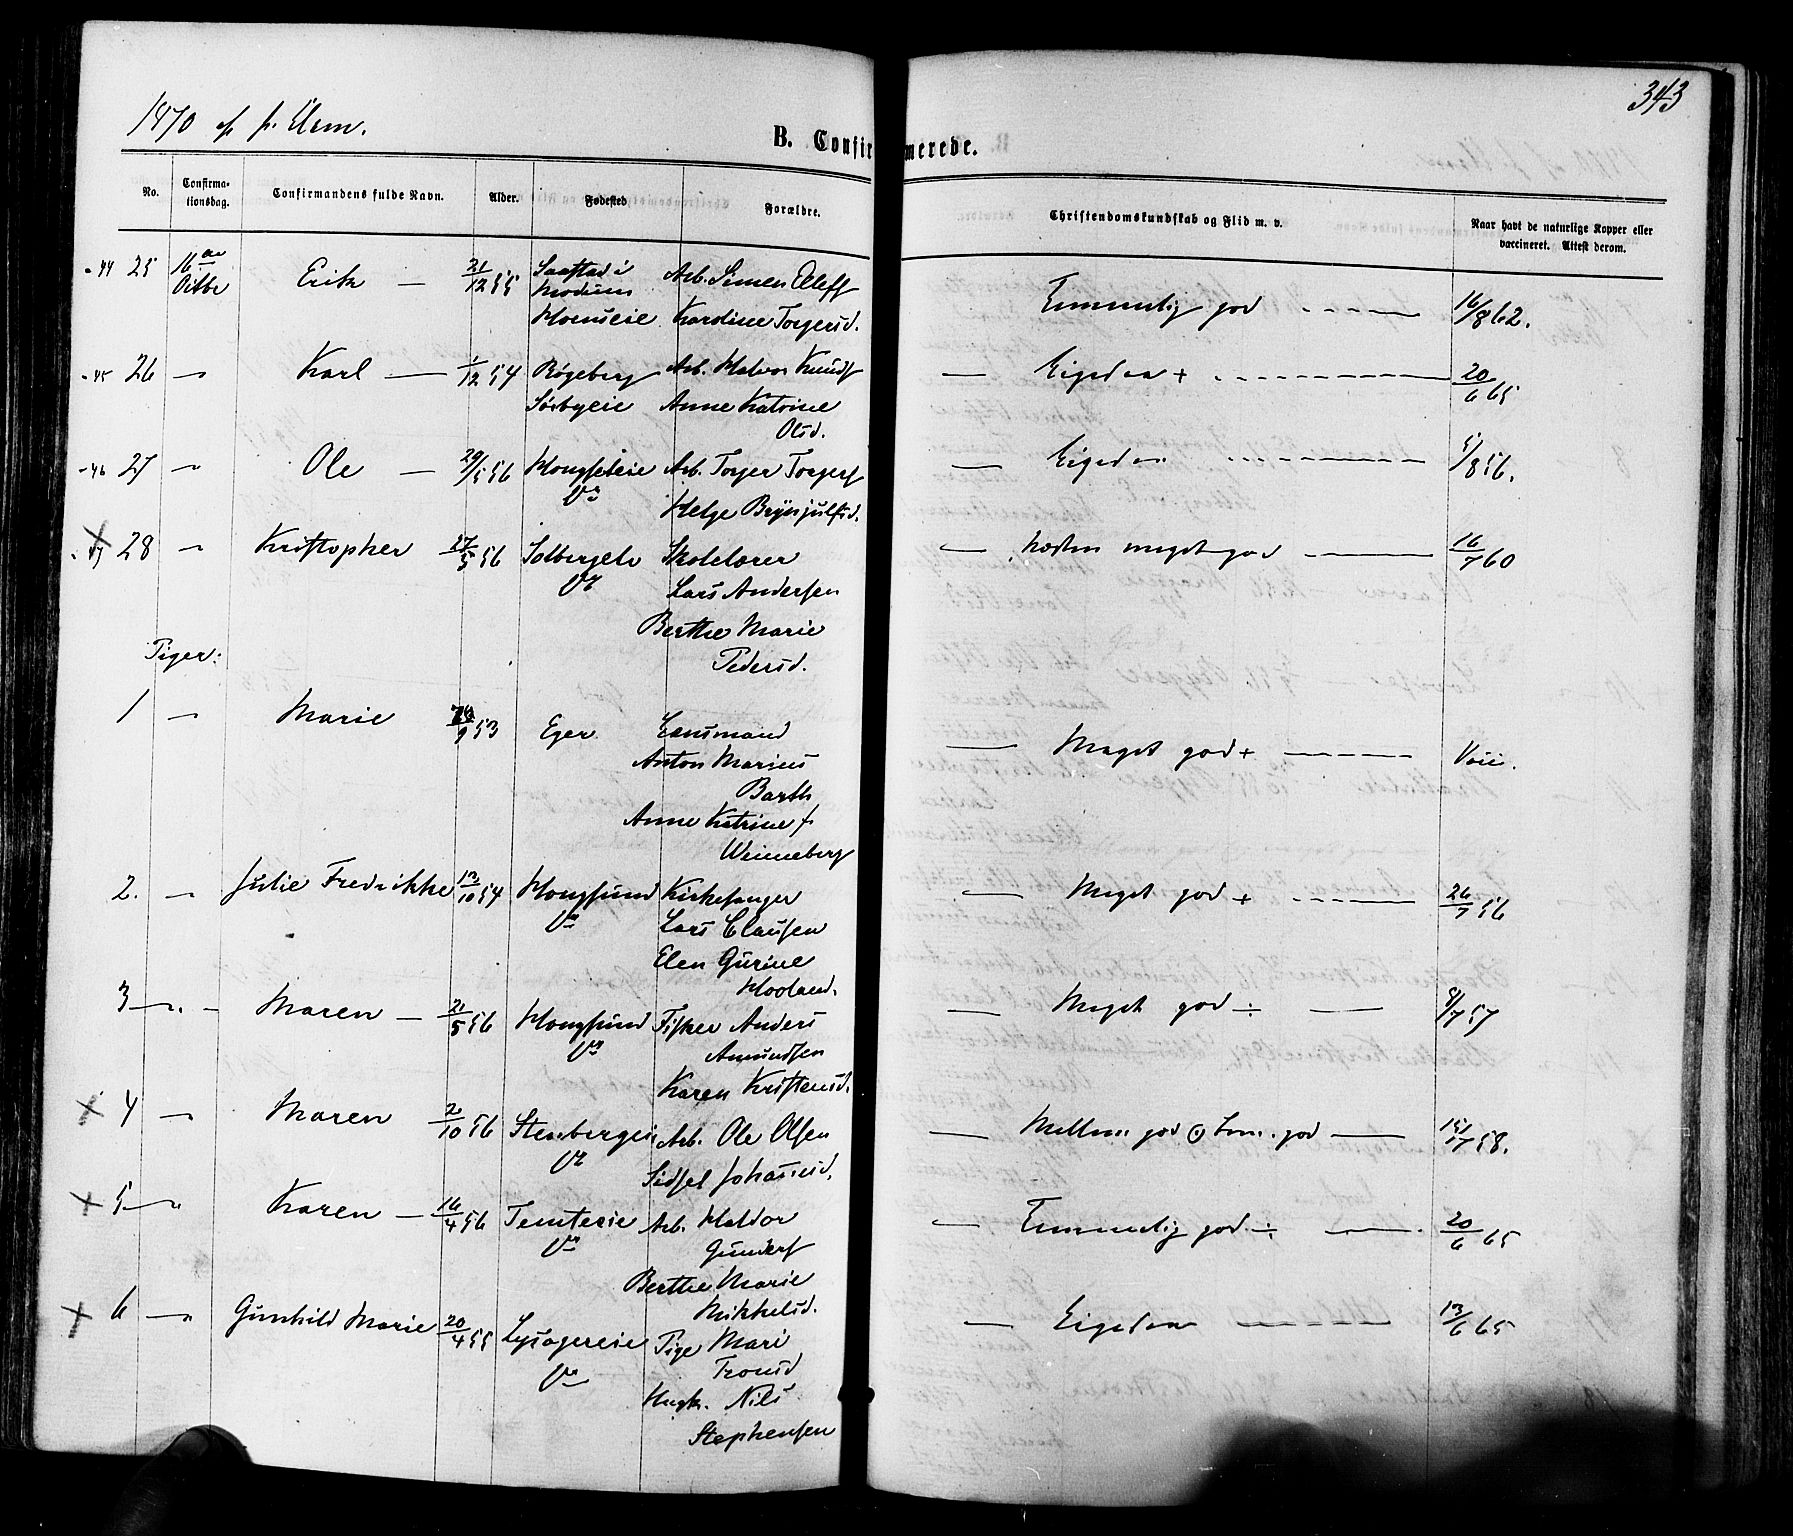 343
1870
B. Confirmerede.
No. Confirmationsdag. Confirmandens fulde Navn. Alder. Fødested Forældre. Christendomskundskab og Flid m. v. Naar havt de naturlige Kopper eller vaccineret. Attest derom.
- 44 25 16de Octbr Erik — 21/12 55 Saastad i Arb. Simen Olefs Temmelig god - - - - 16/8 62.
Modum
Hoenseie Karoline Torgersd.
- 45 26 " Karl — 1/12 54 Røgeberg Arb. Halvor Knuds — Ligedan + - - - - 20/6 65
Sørbyeie Anne Katrine
Olsd.
- 46 27 " Ole — 29/5 56 Arb. Torger Torgers — Ligedan - - - - 5/8 56.
Helge Brynjulfsd.
- 47 28 " Kristopher 27/5 56 Skolelærer — næsten meget god — 16/7 60
Lars Andersen
Berthe Marie
Pedersd.
Piger:
1 " Marie 53 Eger Lensmand — Meget god + - - - - Vice.
Anton Marius
Barth
Anne Katrine f
Wenneberg
2. " Julie Fredrikke 13/10 54 Hougsund Kirkesanger — Meget god + - - - - 26/7 56
Lars Clausen
Elen Gurine
Hooland.
3 " Maren — 2/5 56 Hougsund Fisker Anders — Meget god ÷ — 8/7 57
Amundsen
Karen Kristensd.
× 4 " Maren 2/10 56 Arb. Ole Olsen — Mellem god og tem. god — 15/7 58.
Sidsel Johannesd.
× 5 " Karen — 16/4 56 Temteeie Arb. Haldor — Temmelig god ÷ — 20/6 65
Gunders
Berthe Marie
Mikkelsd.
× 6 " Gunhild Marie 20/4 55 Lysagereie Pige Mari — Ligedan - - - - 13/6 65
Tronsd
Nils
Stephensen